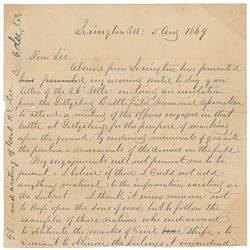 Lexington VA: 5 Aug 1869
Dear Sir
Absence from Lexington has prevented
my receiving until to day your
letter of the 26th Ulto: enclosing an invitation
from the Gettysburg Battlefield Memorial Association
to attend a meeting of the officers engaged in that
battle at Gettysburg, for the purpose of marking
upon the ground by enduring memorials of granite
the positions & movements of the armies on the field.
My engagements will not permit me to be
present, & I believe if there I could not add
anything material to the information existing on
the subject. I think it wiser moreover not
to keep open the sores of war, but to follow the
examples of those nations who endeavoured
to obliterate the marks of civil strife & to
commit to oblivion the feelings it engendered